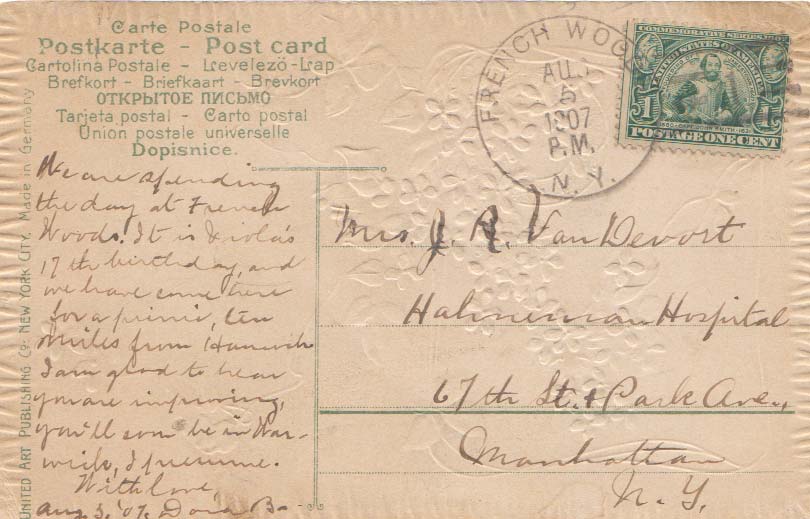 Carte Postale
Postkarte - Post card
Cartolina Postale - Levelező-Lap
Brefkort - Briefkaart - Brevkort
ОТКРЫТОЕ ПИСЬМО
Tarjeta postal - Carto postal
Union postale universelle
Dopisnice.
UNITED ART PUBLISHING CO: NEW YORK CITY. Made in Germany
We are spending
the day at French
Woods. It is Viola's
17th birthday, and
we have come here
for a picnic, ten
miles from Hancock
I am glad to hear
you are improving,
you'll soon be in War-
wick, I presume.
With love,
Aug 5, '07. Dora B-
FRENCH WOO
AUG
5
1907
P.M.
N.Y.
COMMEMORATIVE SERIES 1907
UNITED STATES OF AMERICA
1
1
1580 CAPT. JOHN SMITH 1631
POSTAGE ONE CENT
Mrs. J. R. VanDevort
Hahneman Hospital
67th St. & Park Ave.,
Manhattan
N. Y.